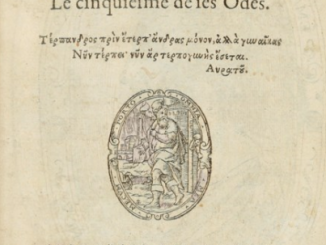 Le cinquieſme de ſes Odes.
Τέρπανδρος πρὶν ἔτερπ' ἄνδρας μόνον, ἀλλὰ γυναῖκας
Νῦν τέρπει· νῦν ἄρ τερπογυνὴς ἔσεται.
Αυρατȣ.
OMNIA MEA MECUM PORTO